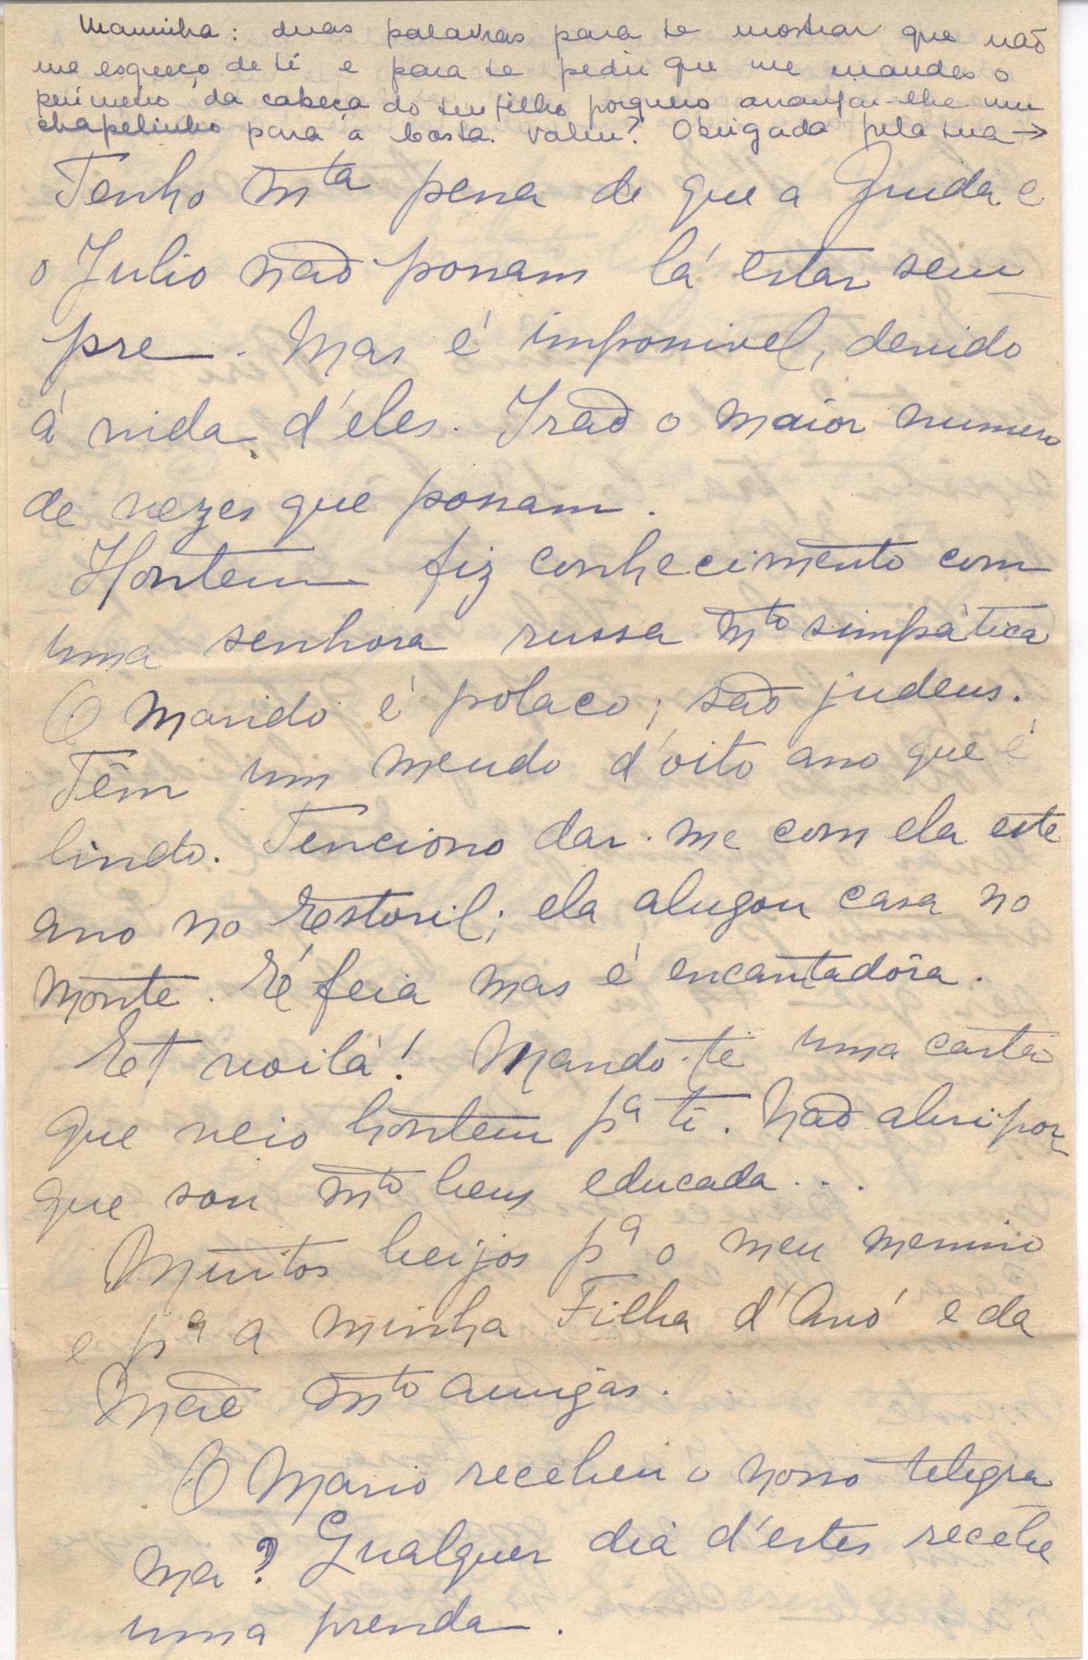 Maminha: duas palavras para te mostrar que não
me esqueço de ti e para te pedir que me mandes o
perimetro da cabeça do teu filho porquero arranjar-lhe um
chapelinho para a costa. Valeu? Obrigada pela tua →
Tenho mta pena de que a Guida e
o Julio não possam lá estar sem
pre. Mas é impossivel, devido
á vida d'eles. Irão o maior numero
de vezes que possam.
Hontem fiz conhecimento com
uma senhora russa mto simpática
O marido é polaco; são judeus.
Têm um meudo d'oito ano que é
lindo. Tenciono dar-me com ela este
ano no Estoril; ela alugou casa no
monte. É feia mas é encantadôra.
Et voilà! Mando-te uma carta
que veio hontem pa ti. Não abri por
que sou mto bem educada...
Muitos beijos pa o meu menino
e pa a minha Filha d'Avó e da
Mãe mto amigas.
O Mario recebeu o nosso telegra
ma? Qualquer dia d'estes recebe
uma prenda.